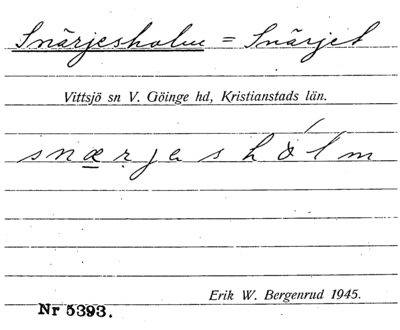 Snärjesholm = Snärjet
Vittsjö sn V. Göinge hd, Kristianstads län.
snærjeshålm
Erik W. Bergenrud 1945.
Nr 5393.